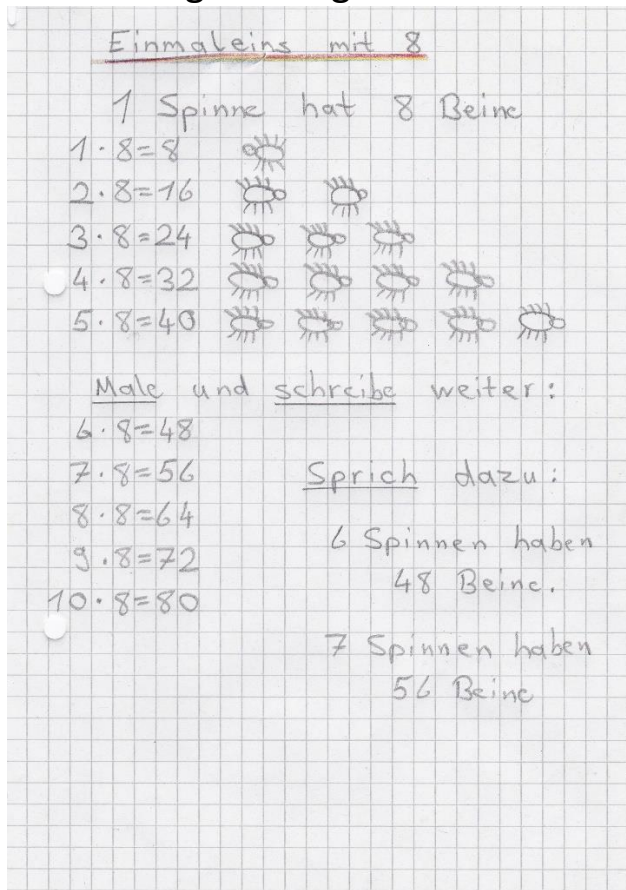 Einmaleins mit 8
1 Spinne hat 8 Beine
1 · 8 = 8
2 · 8 = 16
3 · 8 = 24
4 · 8 = 32
5 · 8 = 40
Male und schreibe weiter:
6 · 8 = 48
7 · 8 = 56
8 · 8 = 64
9 · 8 = 72
10 · 8 = 80
Sprich dazu:
6 Spinnen haben
48 Beine.
7 Spinnen haben
56 Beine